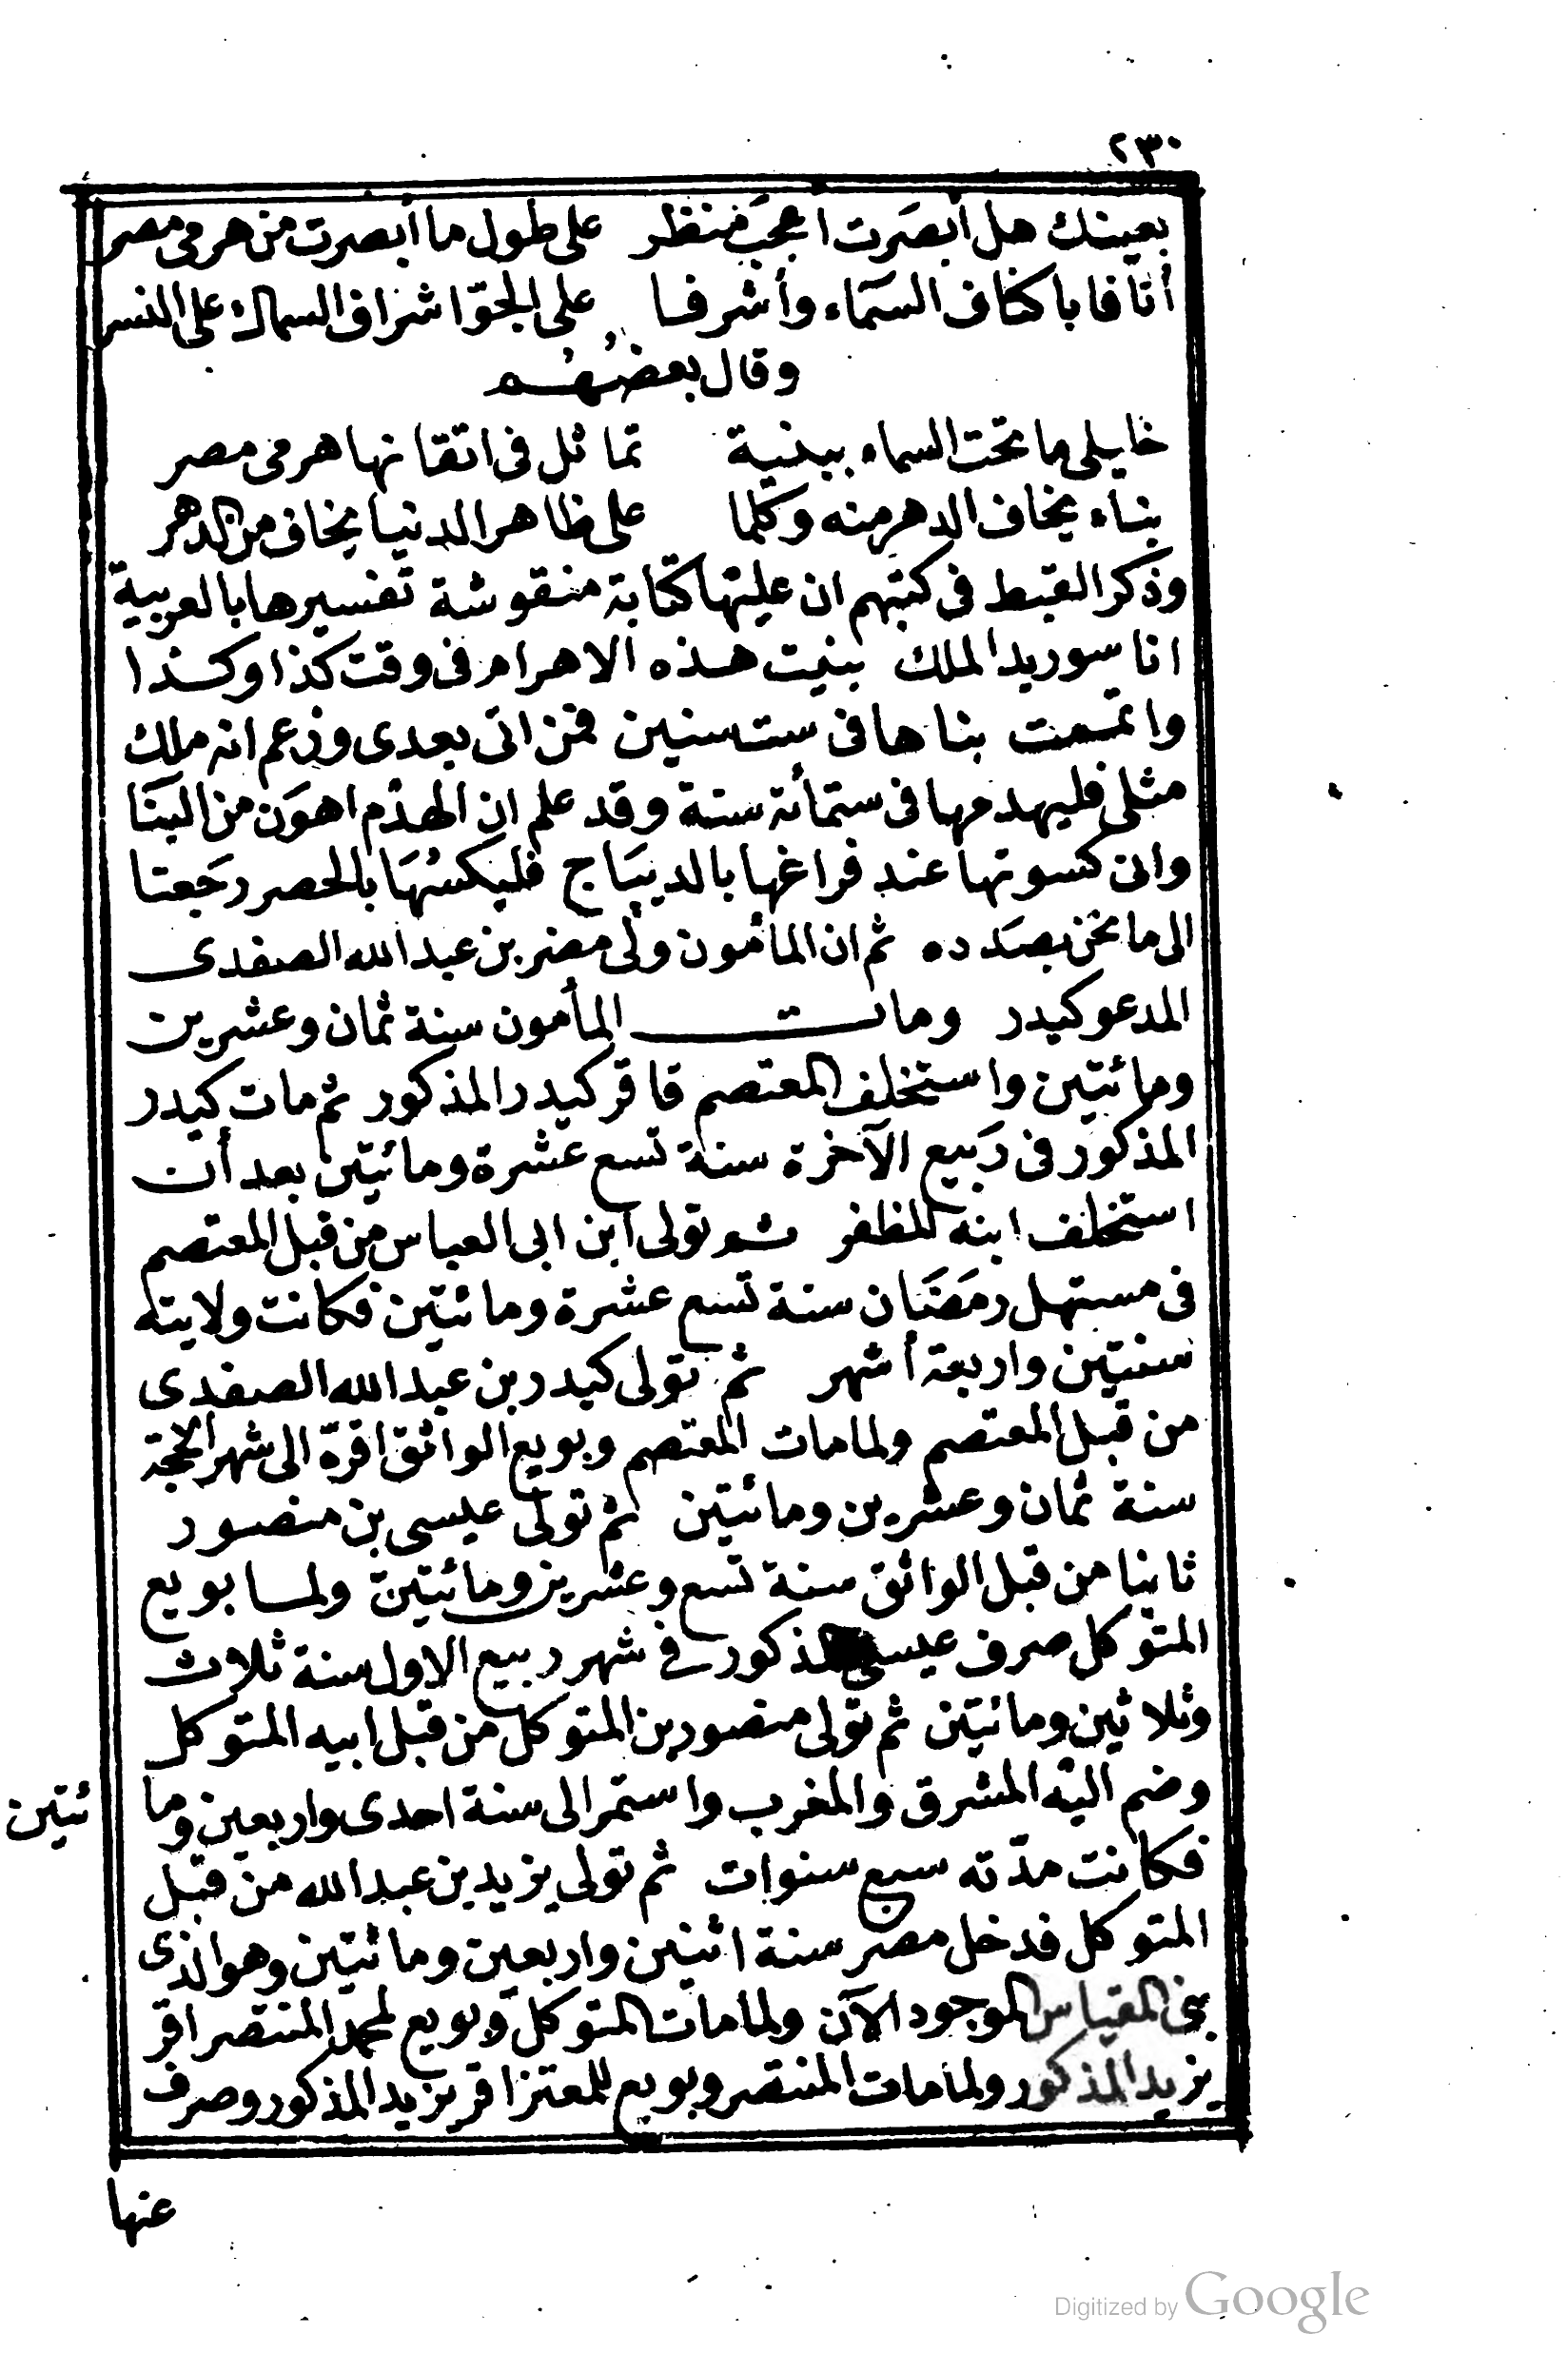 ٢٣٠
بعينك هل أبصَرت اعجبَ منظر على طول ما أبصرت من هرمى مصر
أنافا باكناف السمَاء وأشرفا على الجوّ اشراف السماك على النسر
وقال بعضُهُم
خليلى ما تحت السماء ببنية تماثل فى اتقانها هرمى مصر
بناء يخاف الدهر منه وكلما على ظاهر الدنيا يخاف من الدهر
وذكر القبط فى كتبهم ان عليها كتابة منقوشة تفسيرها بالعربية
انا سوريد الملك بنيت هذه الاهرام فى وقت كذا وكذا
واتممت بناها فى ست سنين فمن اتى بعدى وزعم انه ملك
مثلى فليهدمها فى ستمأئة سنة وقد علم ان الهدْم اهوَن من البنَا
وانى كسوتها عند فراغها بالديبَاج فليكسُهَا بالحصر رجَعنا
الى ما نحن بصَدده ثم ان المأمون ولى مضر بن عبد الله الصفدى
المدعو كيدر ومات المأمون سنة ثمان وعشرين
ومائتين واستخلف المعتصم فاقر كيدر المذكور ثم مات كيدر
المذكور فى رَبيع الآخرة سنة تسع عشرة ومائتين بعد أن
استخلف ابنه المظفر ثم تولى ابن ابى العباس من قبل المعتصم
فى مستهل رمَضَان سنة تسع عشرة ومائتين فكانت ولايته
سنتين واربعة أشهر ثم تولى كيدر بن عبد الله الصفدى
من قبل المعتصم ولما مات المعتصم وبويع الواثق اقرّه الى شهر الحجة
سنة ثمان وعشرين ومائتين ثم تولى عيسى بن منصور
ثانيا من قبل الواثق سنة تسع وعشرين ومائتين ولما بويع
المتوكل صرف عيسى المذكور فى شهر ربيع الاول سنة ثلاث
وثلاثين ومائتين ثم تولى منصور بن المتوكل من قبل ابيه المتوكل
وضم اليه المشرق والمغرب واستمر الى سنة احدى واربعين وما ئتين
فكانت مدّته سبع سنوات ثم تولى يزيد بن عبد الله من قبل
المتوكل فدخل مصر سنة اثنين واربعين ومائتين وهو الذى
بنى المقياس الموجود الآن ولما مات المتوكل وبويع لمحمد المنتصر اقر
يزيد المذكور ولما مات المنتصر وبويع للمعتز اقر يزيد المذكور وصرف
عنها
Digitized by Google